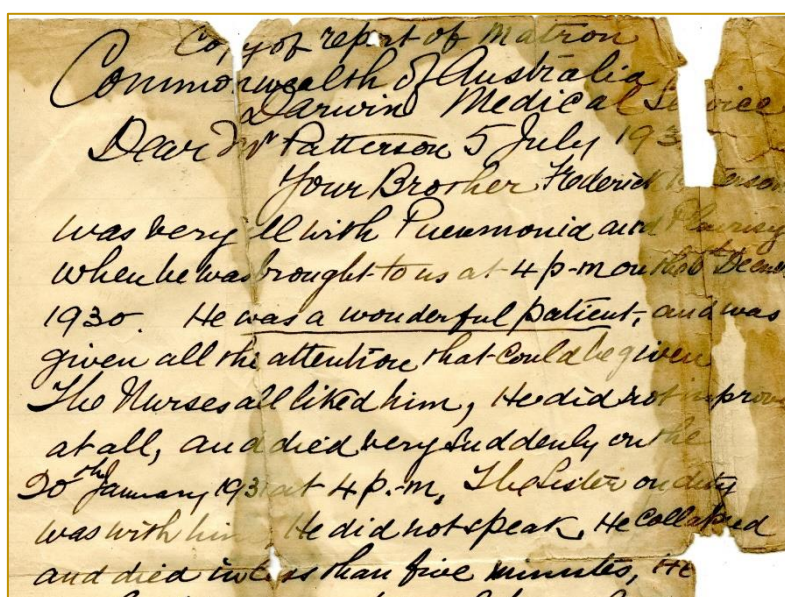 Copy of report of Matron
Commonwealth of Australia
Darwin Medical Service
Dear Mr Patterson 5 July 193
Your Brother Frederick
was very ill with Pneumonia and Pleurisy
when he was brought to us at 4 p-m on the
1930. He was a wonderful patient, and was
given all the attention that could be given
The Nurses all liked him, He did not improve
at all, and died very suddenly on the
20th January 193 at 4 p.-m, The Sister on duty
was with him, He did not speak, He collapsed
and died in less than five minutes, He